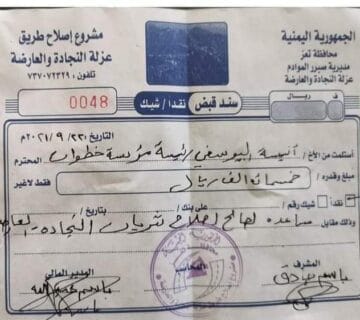 الجمهورية اليمنية
محافظة تعز
مديرية صبر الموادم
عزلة النجادة والعارضة
مشروع إصلاح طريق
عزلة النجادة والعارضة
تلفون: ٧٣٧٠٧٢٣٢٩
ف ريال
سند قبض نقدا / شيك
0048
التاريخ: ٢٣ / ٩ / ٢٠٢١م
أستلمت من الأخ / أنيسة اليوسفي رئيسة مؤسسة خطوات المحترم
مبلغ وقدره / خمسمائة الف ريال فقط لاغير
نقدا شيك رقم / على بنك / بتاريخ /
وذلك مقابل مساعدة لصالح اصلاح طريق النجادة
المشرف
باسم صادق
المحاسب
المدير المالي
باسم